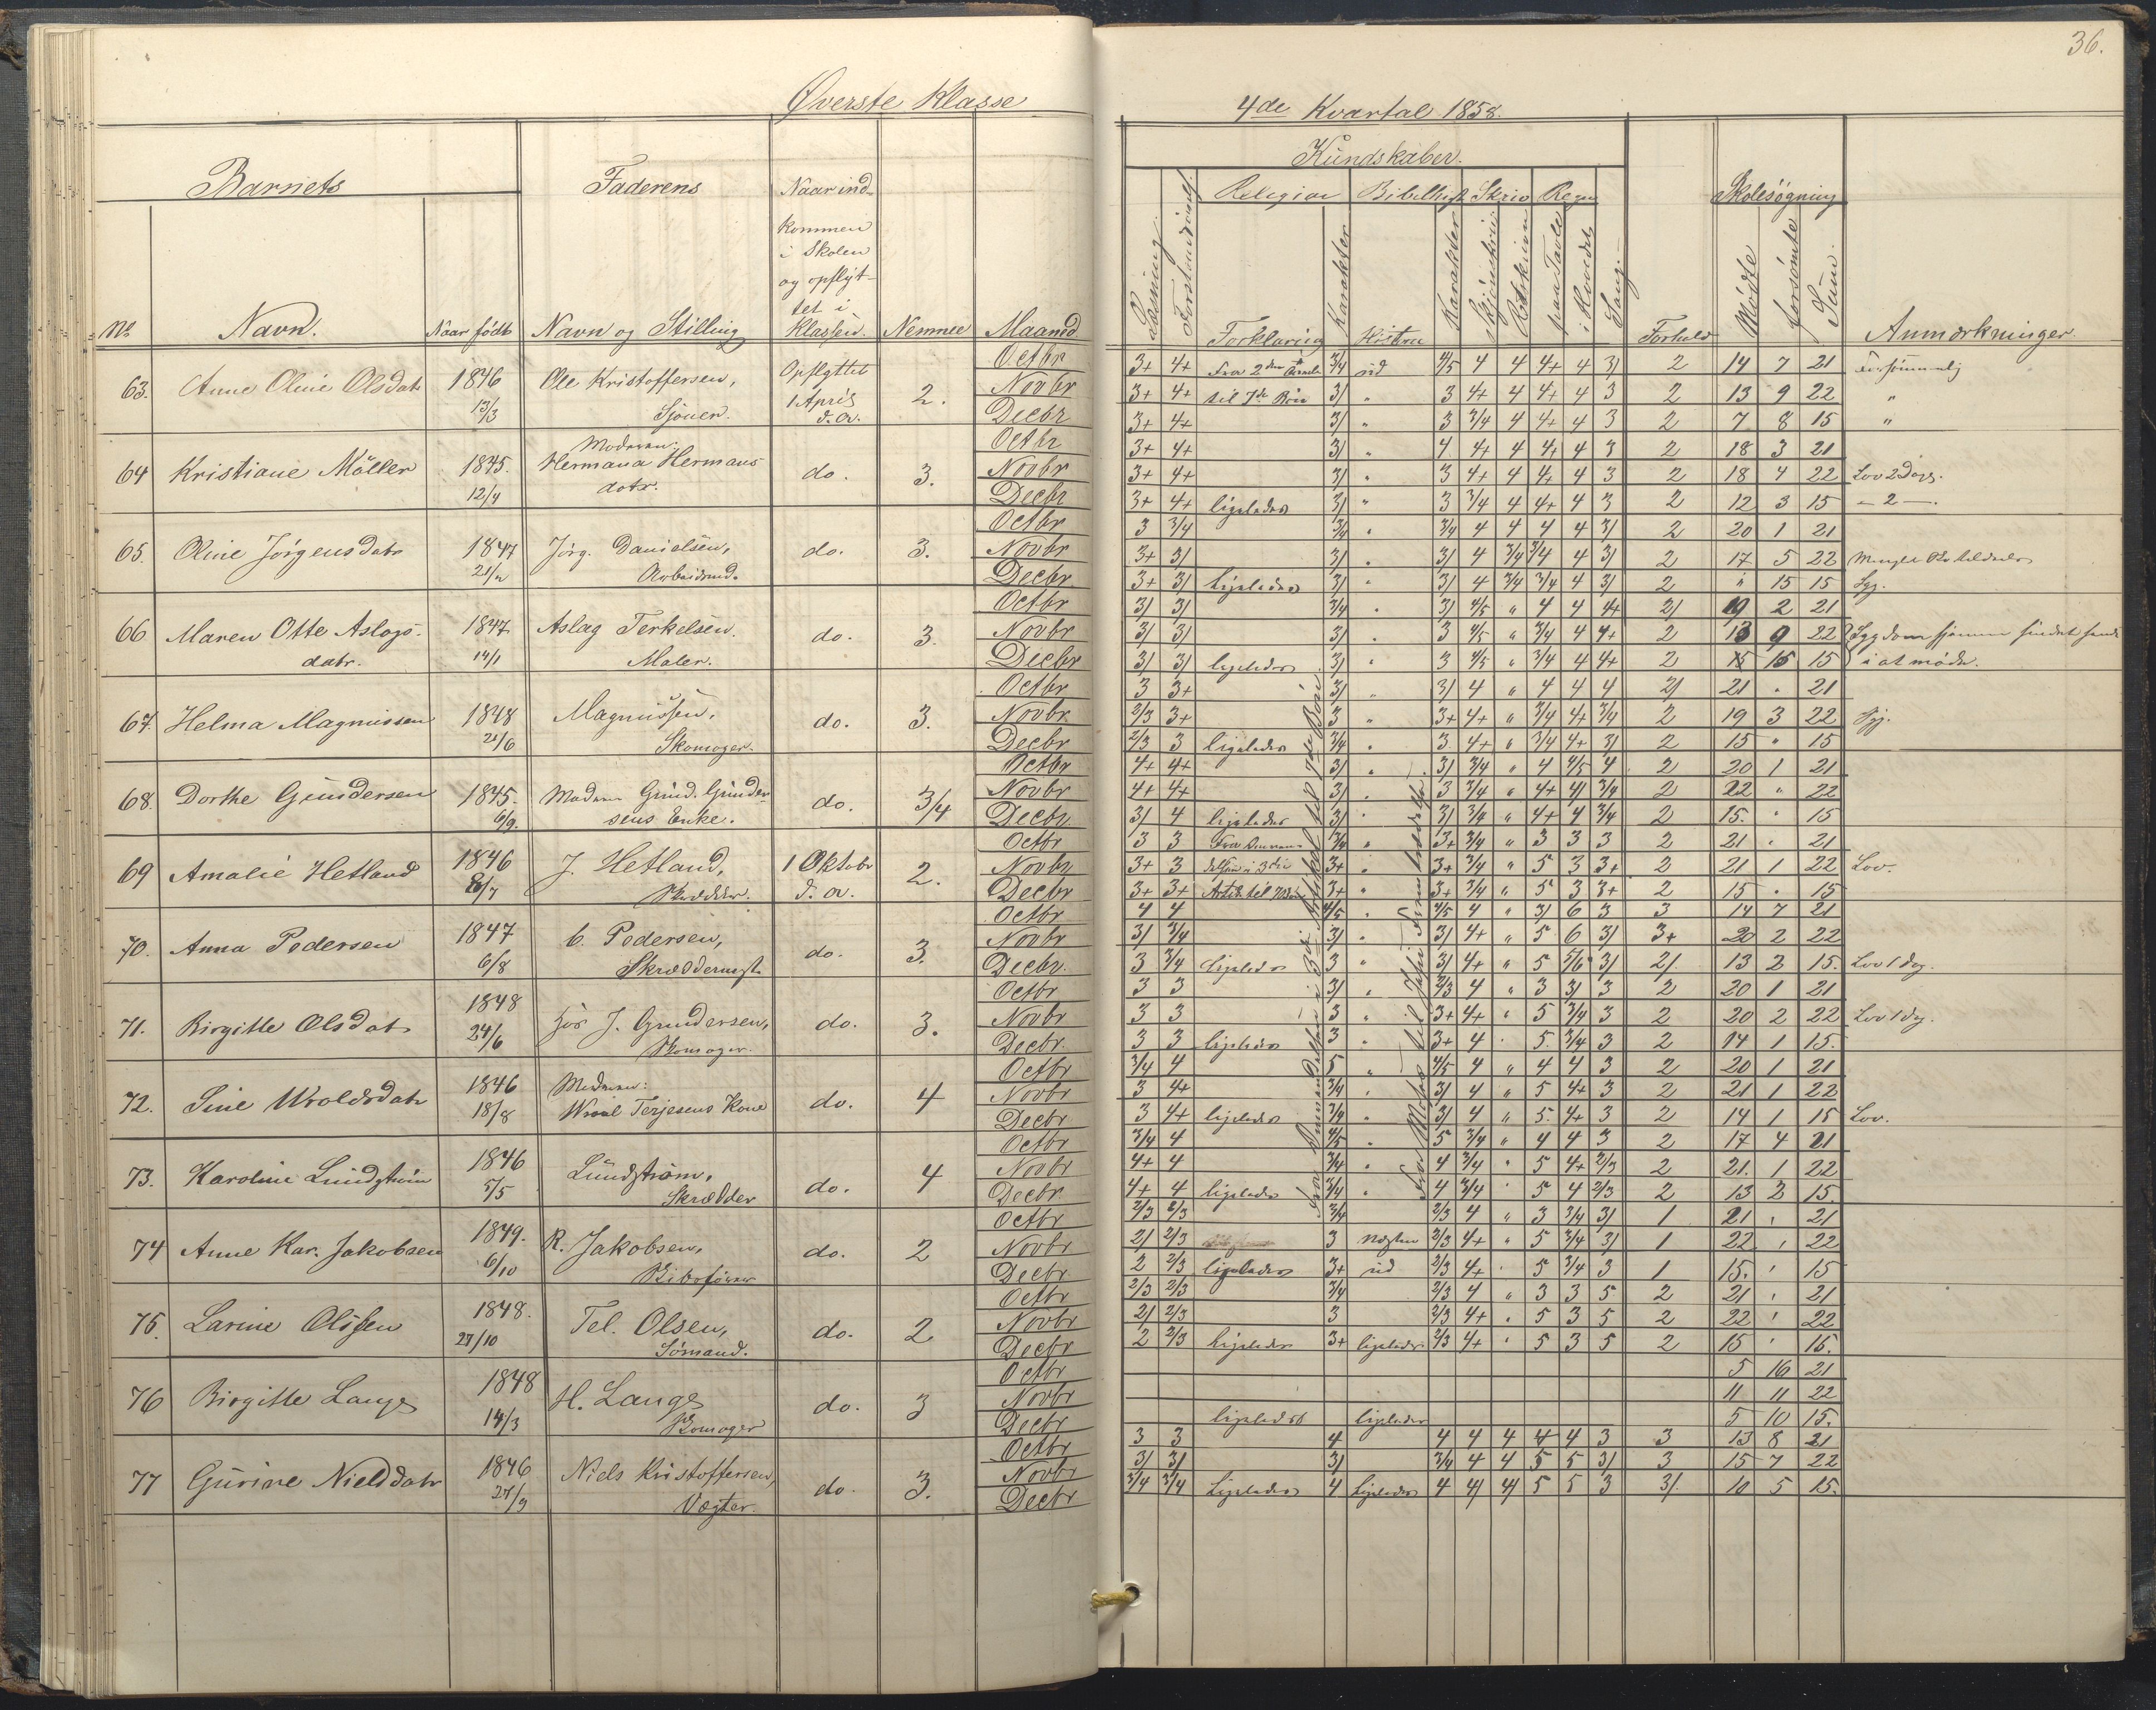 36.
Øverste Klasse
4de Kvartal 1858.
Barnets
Faderens
Naar ind-
kommen
i Skolen
og opflyt-
tet i
Klassen.
Kundskaber.
Religion Bibelhist Skriv Regn
Skolesøgning
No Navn. Naar født Navn og Stilling Nemme Maaned
Læsning Forklaring Karakter Historie Karakter Skjønskriv paa Tavle i Hovedet Sang. Forhold Mødte forsømte Sum. Anmærkninger.
63. Anne Oline Olsdatr 1846 13/3 Ole Kristoffersen, Sjouer. Opflyttet 1 April d. a. 2.
Octbr 3+ 4+ Fra 2den 3/4 4/5 4 4 4+ 4 3/ 2 14 7 21
Novbr 3+ 4+ til 7de Bøn 3/ " 3 4+ 4 4+ 4 3 2 13 9 22 "
Decbr 3+ 4+ 3/ " 3 3/4 4 4+ 4 3 2 7 8 15 "
64 Kristiane Möller 1845. 12/4 Moderen: Hermana Hermans datr. do. 3.
Octbr 3+ 4+ 3/ " 4 4+ 4 4+ 4 3 2 18 3 21
Novbr 3+ 4+ 3/ " 3 4+ 4 4+ 4 3 2 18 4 22 Lov 2 Dage.
Decbr 3+ 4+ ligeledes 3/ " 3 3/4 4 4+ 4 3 2 12 3 15 – 2 –.
65. Oline Jørgensdatr 1847 21/2 Jørg. Danielsen, Arbeidsmd. do. 3.
Octbr 3 3/4 3/4 " 3/4 4 4 4 4 3/ 2 20 1 21
Novbr 3+ 3/ 3/ " 3/ 4 3/4 3/4 4 3/ 2 17 5 22
Decbr 3+ 3/ ligeledes 3/ " 3/ 4 3/4 3/4 4 3/ 2 " 15 15 Syg.
66 Maren Otte Aslags- datr. 1847 14/1 Aslag Terkelsen. Maler. do. 3.
Octbr 3/ 3/ 3/4 " 3/ 4/5 " 4 4 4+ 2/ 19 2 21
Novbr 3/ 3/ 3/ " 3 4/5 " 3/4 4 4+ 2 13 9 22 Sygdom
Decbr 3/ 3/ ligeledes 3/ " 3 4/5 " 3/4 4 4+ 2 15 15 i at møde.
67. Helma Magnussen 1848 21/6 Magnussen, Skomager. do. 3.
Octbr 3 3+ 3/ " 3/ 4 " 4 4 4 2/ 21 " 21
Novbr 2/3 3+ 3 " 3+ 4+ " 3/4 4+ 3/4 2 19 3 22 Syg.
Decbr 2/3 3 ligeledes 3/4 " 3 4+ " 3/4 4+ 3/ 2 15 " 15
68. Dorthe Gundersen 1845. 6/9. Gund. Gunder- sens Enke. do. 3/4
Octbr 4+ 4+ 3/ " 3/ 3/4 " 4 4/5 4 2 20 1 21
Novbr 4+ 4+ 3/ " 3 3/4 " 4+ 4/ 3/4 2 22 " 22
Decbr 3/ 4 ligeledes 3/ " 3/ 3/4 " 4+ 4 3/4 2 15. " 15
69 Amalie Hetland 1846 8/7 J. Hetland, Skrædder. 1 Oktobr d. a. 2.
Octbr 3 3 Fra 3/4 " 3+ 3/4 " 3 3 3 2 21 " 21
Novbr 3+ 3 3+ " 3+ 3/4 " 5 3 3+ 2 21 1 22 Lov.
Decbr 3+ 3+ 3+ " 3+ 3/4 " 5 3 3+ 2 15 " 15
70. Anna Pedersen 1847 6/8 C. Pedersen, Skræddermst. do. 3.
Octbr 4 4 4/5 " 4/5 4 " 3/ 6 3 3 14 7 21
Novbr 3/ 3/4 3/ " 3/ 4+ " 5 6 3/ 3+ 20 2 22
Decbr. 3 3/4 ligeledes 3 " 3/ 4+ " 5 5/6 3/ 2/ 13 2 15. Lov 1 dag.
71. Birgitte Olsdatr 1848 24/6 hos J. Gundersen, Skomager. do. 3.
Octbr 3 3 3/ " 2/3 4 " 3 3/ 3 2 20 1 21
Novbr 3 3 3 " 3+ 4+ " 5 3/4 3 2 20 2 22 Lov 1 dag.
Decbr. 3 3 ligeledes 3 " 3+ 4 " 5. 3/4 3 2 14 1 15.
72. Sine Wroldsdatr 1846 18/8 Moderen: Wroal Terjesens Kone do. 4
Octbr 3/4 4 5 " 4/5 4 " 4 4 3 2 20 1 21
Novbr 3 4+ 3/4 " 3/ 4 " 5 4+ 3 2 21 1 22
Decbr 3 4+ ligeledes 3/4 " 3/ 4 " 5. 4+ 3 2 14 1 15 Lov.
73. Karoline Lundstrøm 1846 5/5 Lundstrøm, Skrædder do. 4
Octbr 3/4 4 4/5 " 5 3/4 " 4 4 3 2 17 4 21
Novbr 4+ 4 3/4 " 4 3/4 " 5 4+ 2/3 2 21. 1 22
Decbr 4+ 4 ligeledes 3/4 " 4 3/4 " 5 4 2/3 2 13 2 15.
74 Anne Kar. Jakobsen 1849. 6/10 R. Jakobsen, do. 2
Octbr 2/3 2/3 3/4 2/3 4 " 3 3/4 3/ 1 21 " 21
Novbr 2/ 2/3 3 Næsten 2/3 4+ " 5 3/4 3/ 1 22 " 22
Decbr 2 2/3 ligeledes 3+ ud 2/3 4+ " 5 3/4 3 1 15. " 15
75. Larine Olssen 1848. 27/10 Tel. Olsen, Sømand. do. 2
Octbr 2/3 2/3 3/4 2/3 4 " 3 3 5 2 21 " 21
Novbr 2/ 2/3 3 2/3 4+ " 5 3 5 2 22 " 22
Decbr 2 2/3 ligeledes 3+ ligeledes 2/3 4+ " 5 3 5 2 15 " 15.
76 Birgitte Lange 1848 14/3 H. Lange Skomager do. 3
Octbr 5 16 21
Novbr 11 11 22
Decbr ligeledes ligeledes 5 10 15.
77 Gurine Nielsdatr 1846 27/9 Niels Kristoffersen, Vægter. do. 3.
Octbr 3 3 4 4 4 4 4 4 3 3 13 8 21
Novbr 3/ 3/ 3/ 3/4 4 4 5 5 3/ 3 15 7 22
Decbr 3/4 3/4 Ligeledes 4 Ligeledes 4 4/ 4/ 5 5 3 3/. 10 5 15.